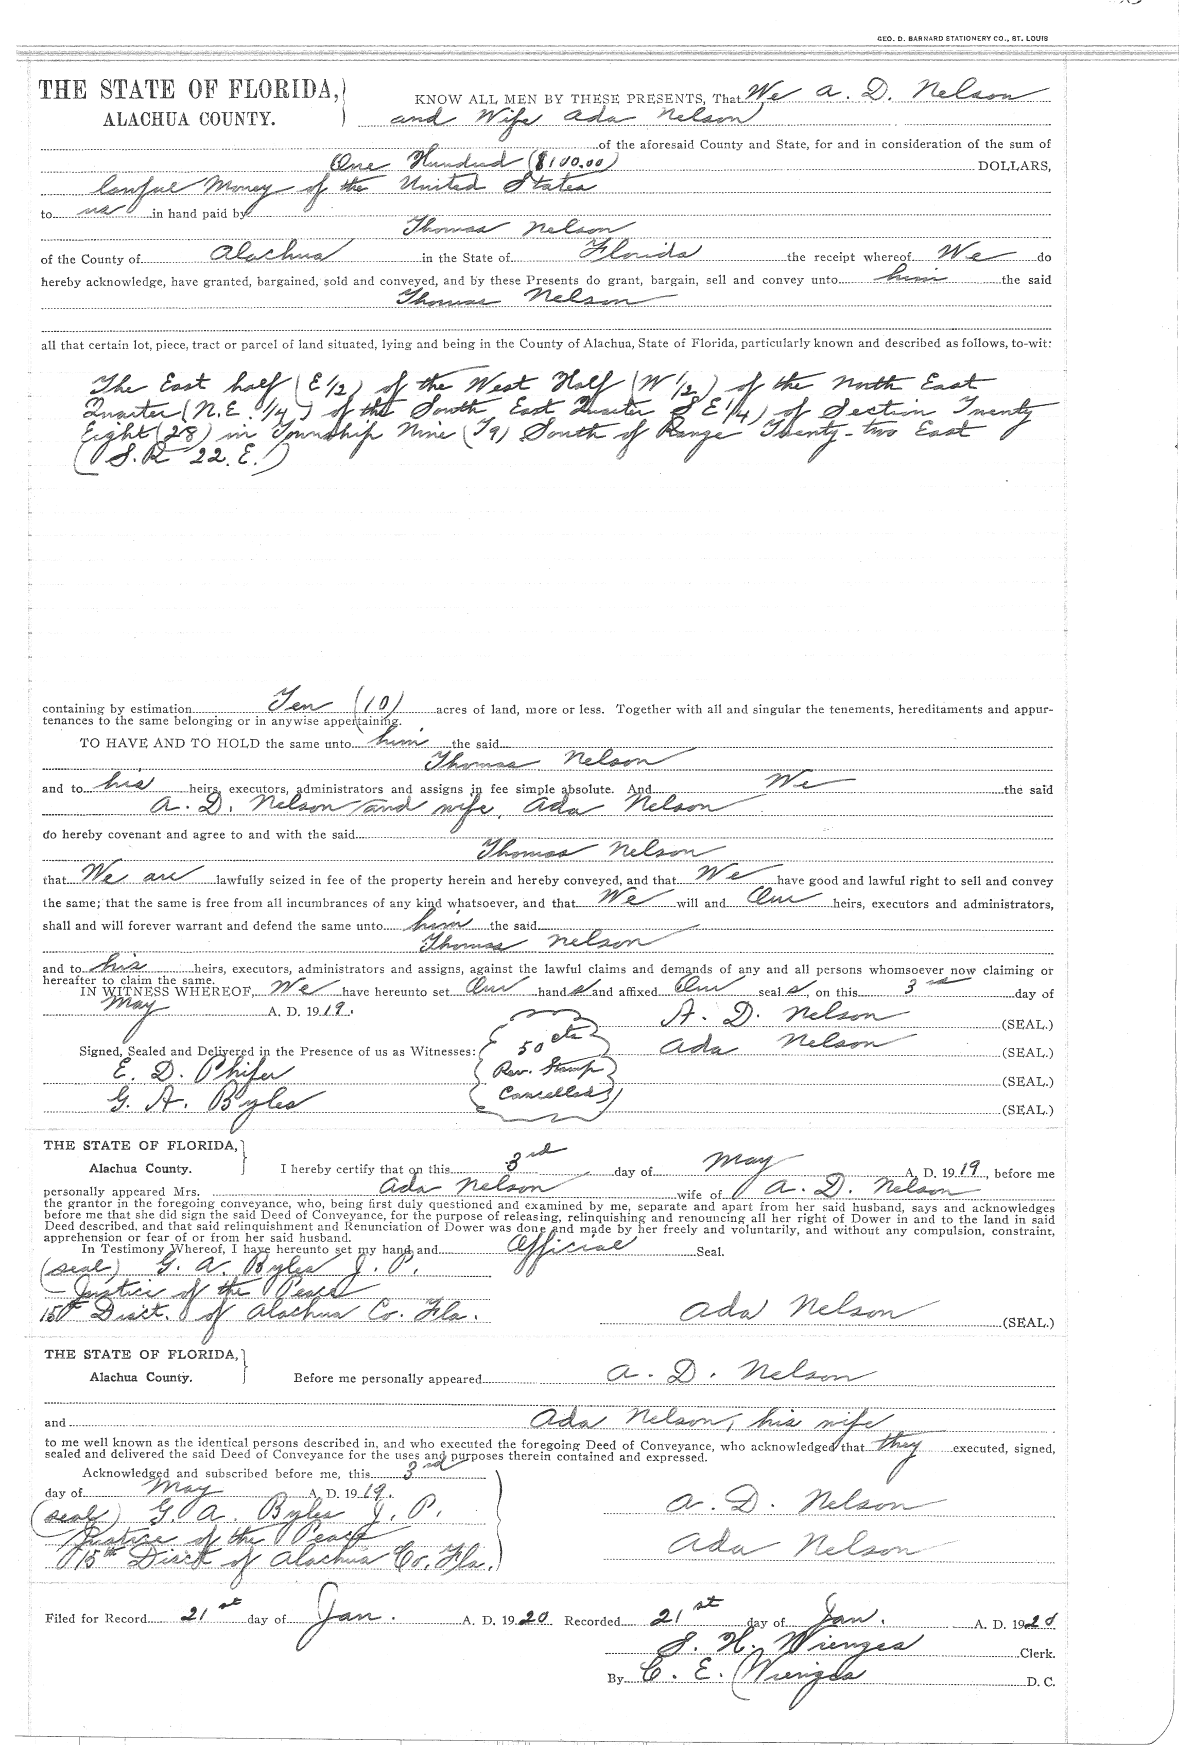 GEO. D. BARNARD STATIONERY CO., ST. LOUIS
THE STATE OF FLORIDA,
ALACHUA COUNTY.
KNOW ALL MEN BY THESE PRESENTS, That We A. D. Nelson
and Wife Ada Nelson
of the aforesaid County and State, for and in consideration of the sum of
One Hundred ($100.00) DOLLARS,
lawful Money of the United States
to us in hand paid by
Thomas Nelson
of the County of Alachua in the State of Florida the receipt whereof We do
hereby acknowledge, have granted, bargained, sold and conveyed, and by these Presents do grant, bargain, sell and convey unto him the said
Thomas Nelson
all that certain lot, piece, tract or parcel of land situated, lying and being in the County of Alachua, State of Florida, particularly known and described as follows, to-wit:
The East half (E 1/2) of the West Half (W 1/2) of the North East
Quarter (N.E. 1/4) of the South East Quarter S E 1/4) of Section Twenty
Eight (28) in Township Nine (T9) South of Range Twenty-two East
(S. R 22. E.)
containing by estimation Ten (10) acres of land, more or less. Together with all and singular the tenements, hereditaments and appur-
tenances to the same belonging or in anywise appertaining.
TO HAVE AND TO HOLD the same unto him the said
Thomas Nelson
and to his heirs, executors, administrators and assigns in fee simple absolute. And We the said
A. D. Nelson and wife, Ada Nelson
do hereby covenant and agree to and with the said
Thomas Nelson
that We are lawfully seized in fee of the property herein and hereby conveyed, and that We have good and lawful right to sell and convey
the same; that the same is free from all incumbrances of any kind whatsoever, and that We will and Our heirs, executors and administrators,
shall and will forever warrant and defend the same unto him the said
Thomas Nelson
and to his heirs, executors, administrators and assigns, against the lawful claims and demands of any and all persons whomsoever now claiming or
hereafter to claim the same.
IN WITNESS WHEREOF, We have hereunto set Our hand s and affixed Our seal s, on this 3rd day of
May A. D. 1919.
A. D. Nelson (SEAL.)
Signed, Sealed and Delivered in the Presence of us as Witnesses: Ada Nelson (SEAL.)
E. D. Phifer (SEAL.)
G. A. Byles (SEAL.)
50 cts
Rev. Stamp
Cancelled
THE STATE OF FLORIDA,
Alachua County. I hereby certify that on this 3rd day of May A. D. 1919, before me
personally appeared Mrs. Ada Nelson wife of A. D. Nelson
the grantor in the foregoing conveyance, who, being first duly questioned and examined by me, separate and apart from her said husband, says and acknowledges
before me that she did sign the said Deed of Conveyance, for the purpose of releasing, relinquishing and renouncing all her right of Dower in and to the land in said
Deed described, and that said relinquishment and Renunciation of Dower was done and made by her freely and voluntarily, and without any compulsion, constraint,
apprehension or fear of or from her said husband.
In Testimony Whereof, I have hereunto set my hand and Official Seal.
(seal) G. A. Byles J. P.
Justice of the Peace
15th Disct. of Alachua Co. Fla.
Ada Nelson (SEAL.)
THE STATE OF FLORIDA,
Alachua County. Before me personally appeared A. D. Nelson
and Ada Nelson, his wife
to me well known as the identical persons described in, and who executed the foregoing Deed of Conveyance, who acknowledged that they executed, signed,
sealed and delivered the said Deed of Conveyance for the uses and purposes therein contained and expressed.
Acknowledged and subscribed before me, this 3rd
day of May A. D. 1919.
(seal) G. A. Byles J. P.
Justice of the Peace
15th Disct of Alachua Co. Fla.
A. D. Nelson
Ada Nelson
Filed for Record 21st day of Jan. A. D. 1920 Recorded 21st day of Jan. A. D. 1920
S. H. Wienges Clerk.
By C. E. Wienges D. C.